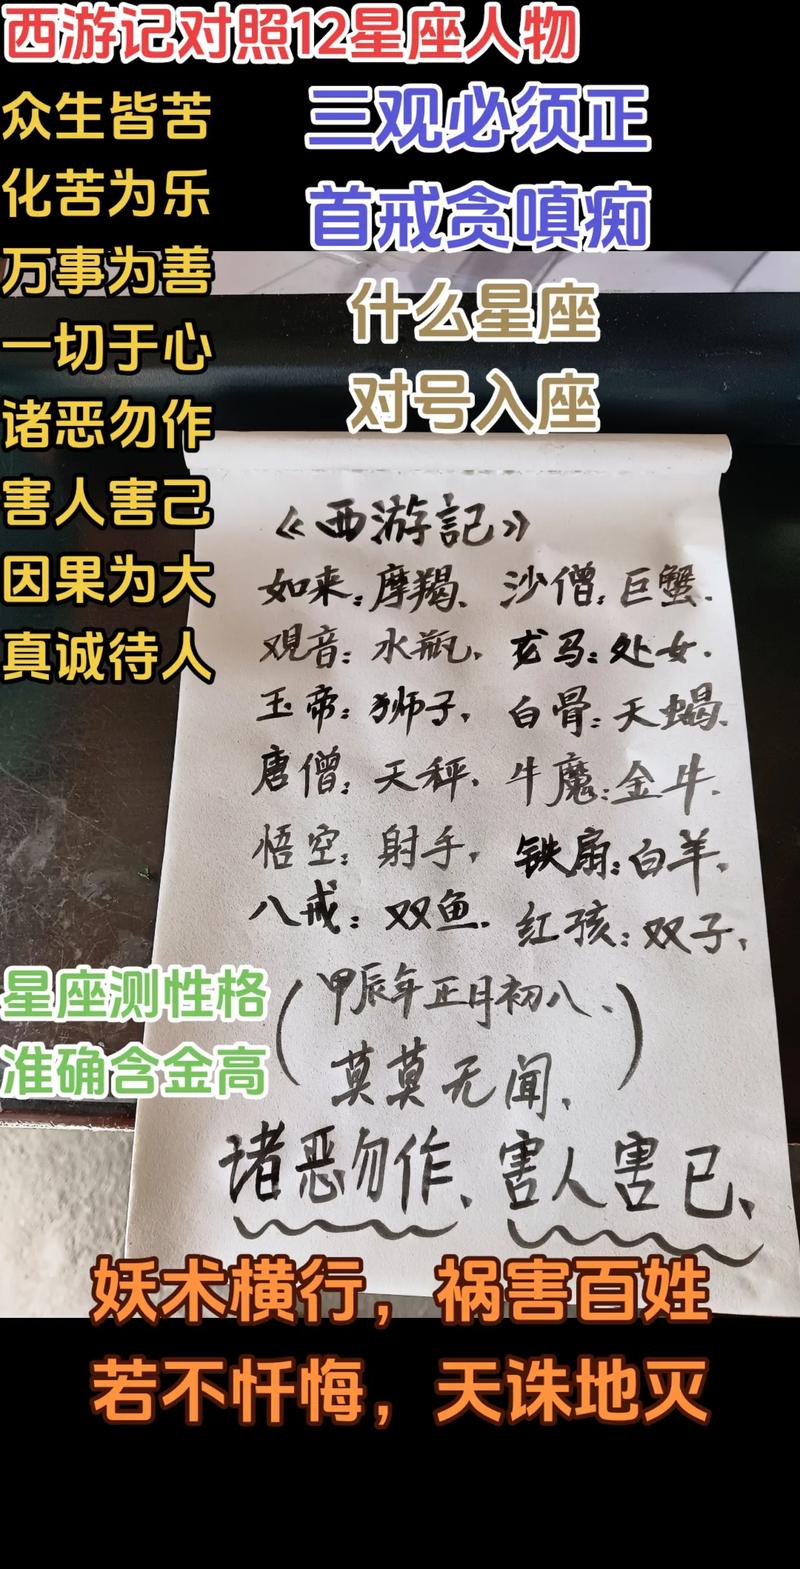 西游记对照12星座人物
众生皆苦
化苦为乐
万事为善
一切于心
诸恶勿作
害人害己
因果为大
真诚待人
三观必须正
首戒贪嗔痴
什么星座
对号入座
《西游記》
如来:摩羯、沙僧:巨蟹.
观音:水瓶,龙马:处女.
玉帝:狮子,白骨:天蝎.
唐僧:天秤.牛魔:金牛.
悟空:射手,铁扇:白羊.
八戒:双鱼.红孩:双子,
(甲辰年正月初八、
莫莫无闻、)
诸恶勿作、害人害己、
星座测性格
准确含金高
妖术横行，祸害百姓
若不忏悔，天诛地灭